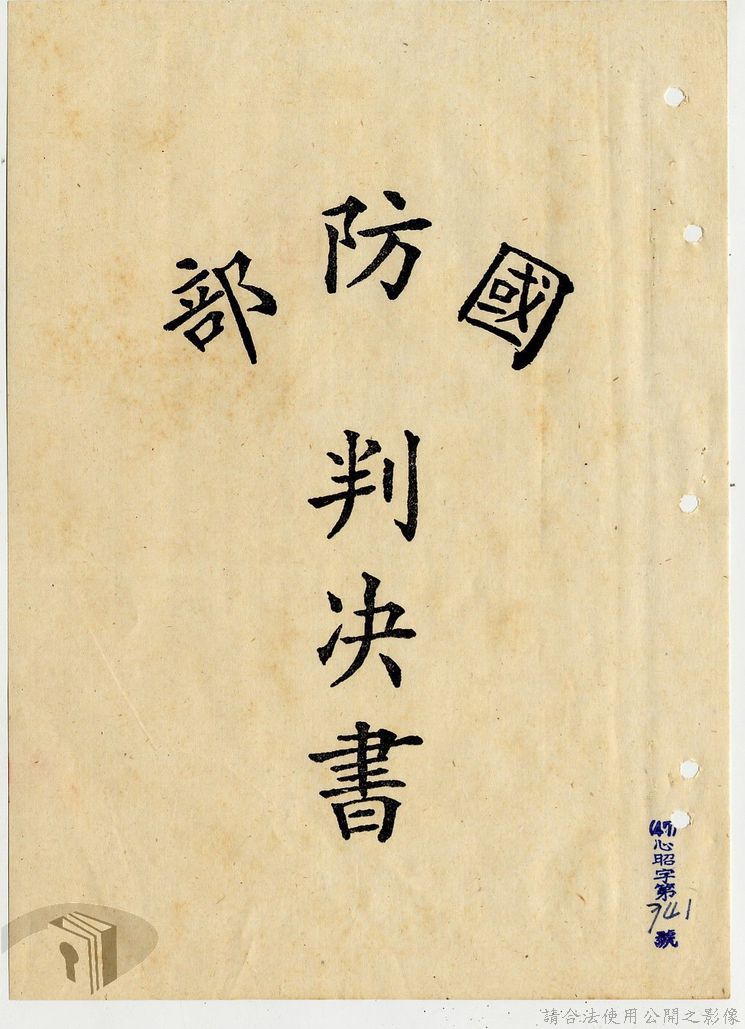 國防部
判决書
(47)心昭字第941號
請合法使用公開之影像